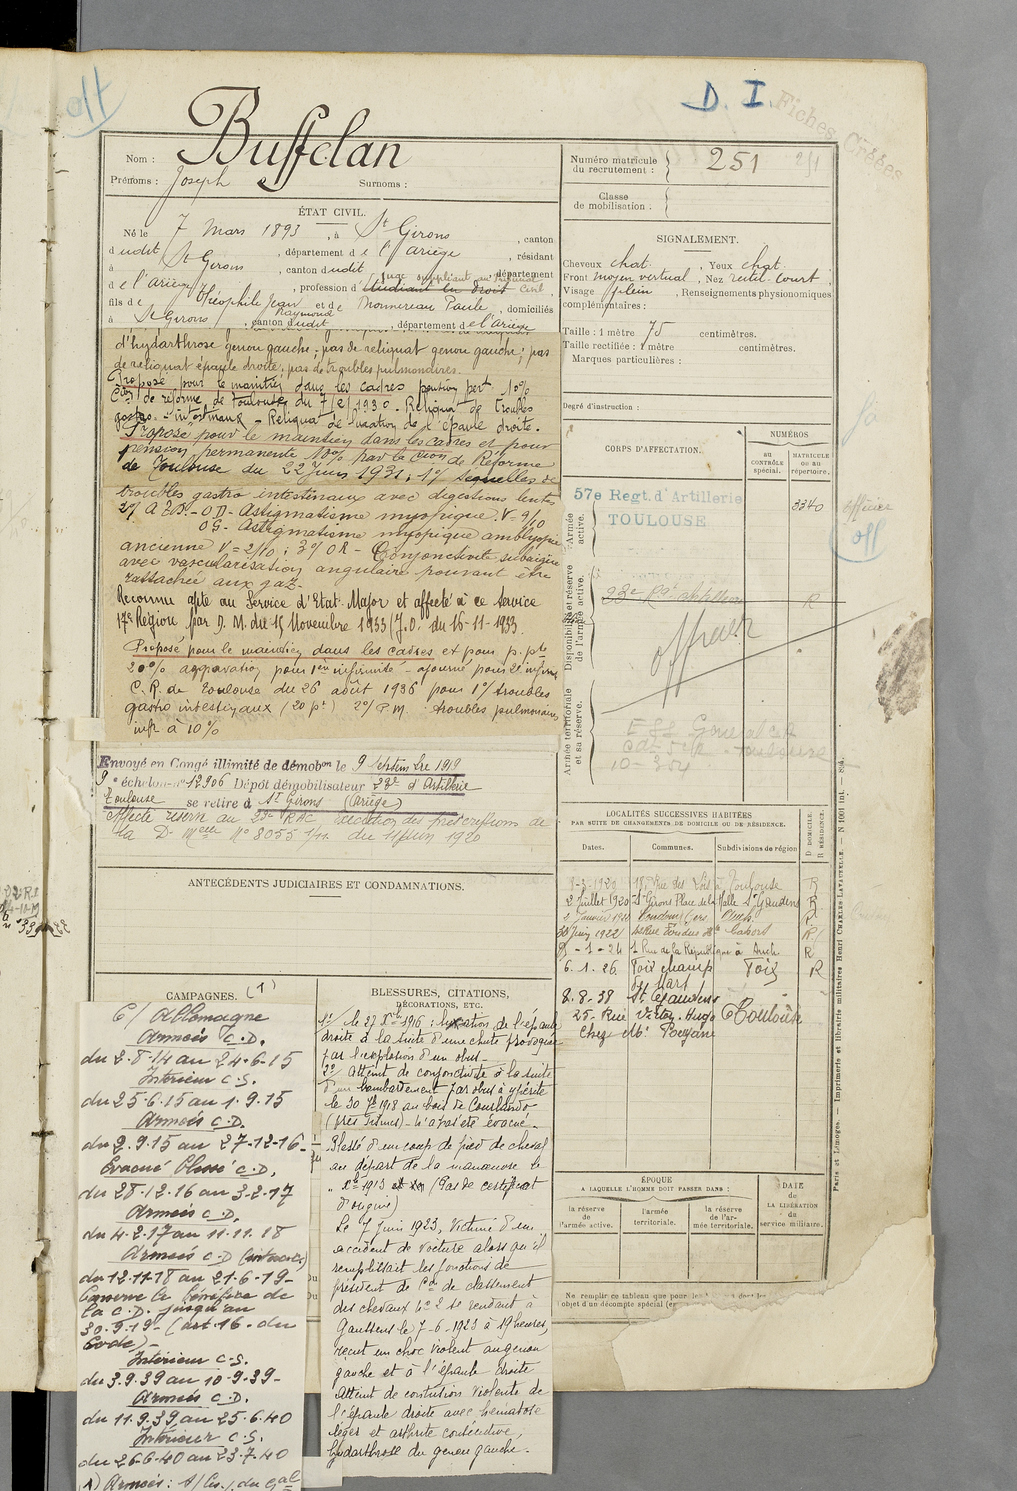 off
D. I.
Fiches Créées
Nom : Buffelan
Prénoms : Joseph Surnoms :
ÉTAT CIVIL.
Né le 7 Mars 1893, à St Girons, canton
dudit St Girons, département de l'Ariège, résidant
à St Girons, canton dudit, département
de l'Ariège, profession d'étudiant en droit juge suppléant au Tribunal Civil,
fils de Théophile Jean Raymond et de Paule, domiciliés
à St Girons, canton dudit, département de l'Ariège
d'hydarthrose genou gauche ; pas de reliquat genou gauche ; pas
de reliquat épaule droite ; pas de troubles pulmonaires.
Proposé pour le maintien dans les cadres pension pert. 10%
Con de réforme de Toulouse du 7/2/1930 - Reliquat de troubles
gastro-intestinaux - Reliquat de luxation de l'épaule droite.
Proposé pour le maintien dans les cadres et pour
pension permanente 10% par la Cion de Réforme
de Toulouse du 22 Juin 1931 : 1°/ séquelles de
troubles gastro intestinaux avec digestions lentes
2°/ A - O D - Astigmatisme myopique V = 9/10
O G - Astigmatisme myopique amblyopie
ancienne V = 2/10 ; 3°/ O R - Conjonctivite subaigüe
avec vascularisation angulaire pouvant être
rattachée aux gaz -
Reconnu apte au Service d'Etat-Major et affecté à ce Service
17e Région par D. M. du 15 Novembre 1933 (J.O. du 16-11-1933
Proposé pour le maintien dans les cadres et pour p. pte
20% aggravation pour 1ère infirmité - ajourné pour 2e infirm
C. R. de Toulouse du 26 août 1936 pour 1°/ troubles
gastro intestinaux (20 p%) 2°/ P. M. troubles pulmonaires
inf. à 10%
Envoyé en Congé illimité de démobon le 9 septembre 1919
9e échelon n° 12906 Dépôt démobilisateur 23e d'Artillerie
Toulouse se retire à St Girons (Ariège)
affecté réserve au 23e RAC exécution des prescriptions de
la Dn melle No 8055 1/11. du 11 juin 1920
ANTÉCÉDENTS JUDICIAIRES ET CONDAMNATIONS.
CAMPAGNES. (1)
C/ Allemagne
Armées C.D.
du 2-8-14 au 24-6-15
Intérieur C.S.
du 25-6-15 au 1-9-15
Armées C.D.
du 2-9-15 au 27-12-16-
Evacué blessé C.D.
du 28-12-16 au 3-2-17
Armées C.D.
du 4-2-17 au 11-11-18
Armées C.D
du 12-11-18 au 21-6-19-
Conserve le bénéfice de
la C.D. jusqu'au
30-9-19- (art. 16. du
Code)-
Intérieur C.S.
du 3.9.39 au 10-9-39-
Armées C.D.
du 11.9.39 au 25-6-40
Intérieur C.S.
du 26-6-40 au 23-7-40
BLESSURES, CITATIONS,
DÉCORATIONS, ETC.
1°/ le 27 Xbre 1916 : luxation de l'épaule
droite à la suite d'une chute provoquée
par l'explosion d'un obus -
2°/ Atteint de conjonctivite à la suite
d'un bombardement par obus à ypérite
le 30 1918 au bois de Courlandon
(près Fismes) - N'a pas été évacué -
Blessé d'un coup de pied de cheval
au départ de la manœuvre le
" 1913 (Pas de certificat
d'origine)
Le 7 Juin 1923, victime d'un
accident de voiture alors qu'il
remplissait les fonctions de
président de Con de classement
des chevaux No 2 se rendant à
le 7-6-1923 à 19 heures,
reçut un choc violent au genou
gauche et à l'épaule droite
Atteint de contusion violente de
l'épaule droite avec hématose
léger et arthrite consécutive,
hydarthrose du genou gauche -
Numéro matricule du recrutement : 251
Classe de mobilisation :
SIGNALEMENT.
Cheveux chat. , Yeux chat.
Front moyen vertical , Nez rectil. court
Visage plein , Renseignements physionomiques
complémentaires :
Taille : 1 mètre 75 centimètres.
Taille rectifiée : 1 mètre centimètres.
Marques particulières :
Degré d'instruction :
CORPS D'AFFECTATION.
NUMÉROS
AU CONTRÔLE spécial.
MATRICULE ou au répertoire.
Armée active.
57e Regt. d'Artillerie
TOULOUSE
3340
officier
off
Disponibilité et réserve de l'armée active.
23e Rgt artillerie
R
officier
Armée territoriale et sa réserve.
LOCALITÉS SUCCESSIVES HABITÉES
PAR SUITE DE CHANGEMENTS DE DOMICILE OU DE RÉSIDENCE.
Dates. Communes. Subdivisions de région D DOMICILE. R RÉSIDENCE.
9-3-1920 18, Rue des Lois à Toulouse R
2 Juillet 1920 St Girons Place de la Halle St Gaudens R
2 Janvier 19 Condom Gers Auch R
30 Juin 1922 Cahors R
9-1-24 1 Rue de la République à Auch R
6.1.26 Foix champ de Mars Foix R
8.8.38 St Gaudens
25, Rue Victor Hugo Toulouse
Chez Mr
ÉPOQUE
A LAQUELLE L'HOMME DOIT PASSER DANS :
la réserve de l'armée active.
l'armée territoriale.
la réserve de l'armée territoriale.
DATE de LA LIBÉRATION du service militaire.
Ne remplir ce tableau que pour les
l'objet d'un décompte spécial
Paris et Limoges. — Imprimerie et librairie militaires Henri CHARLES-LAVAUZELLE. — N 1001 int.